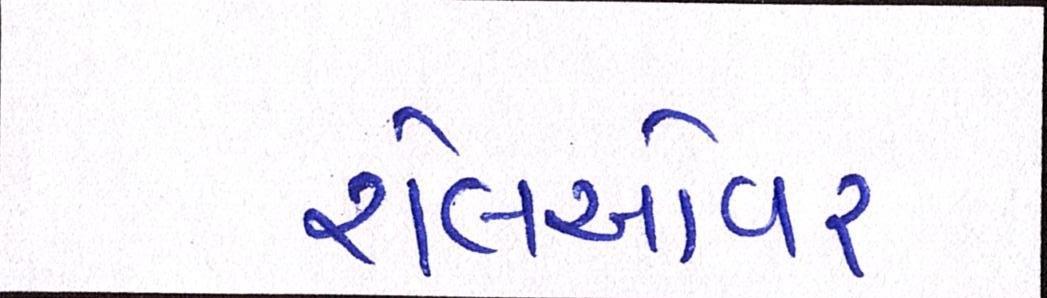 રોલઓવર